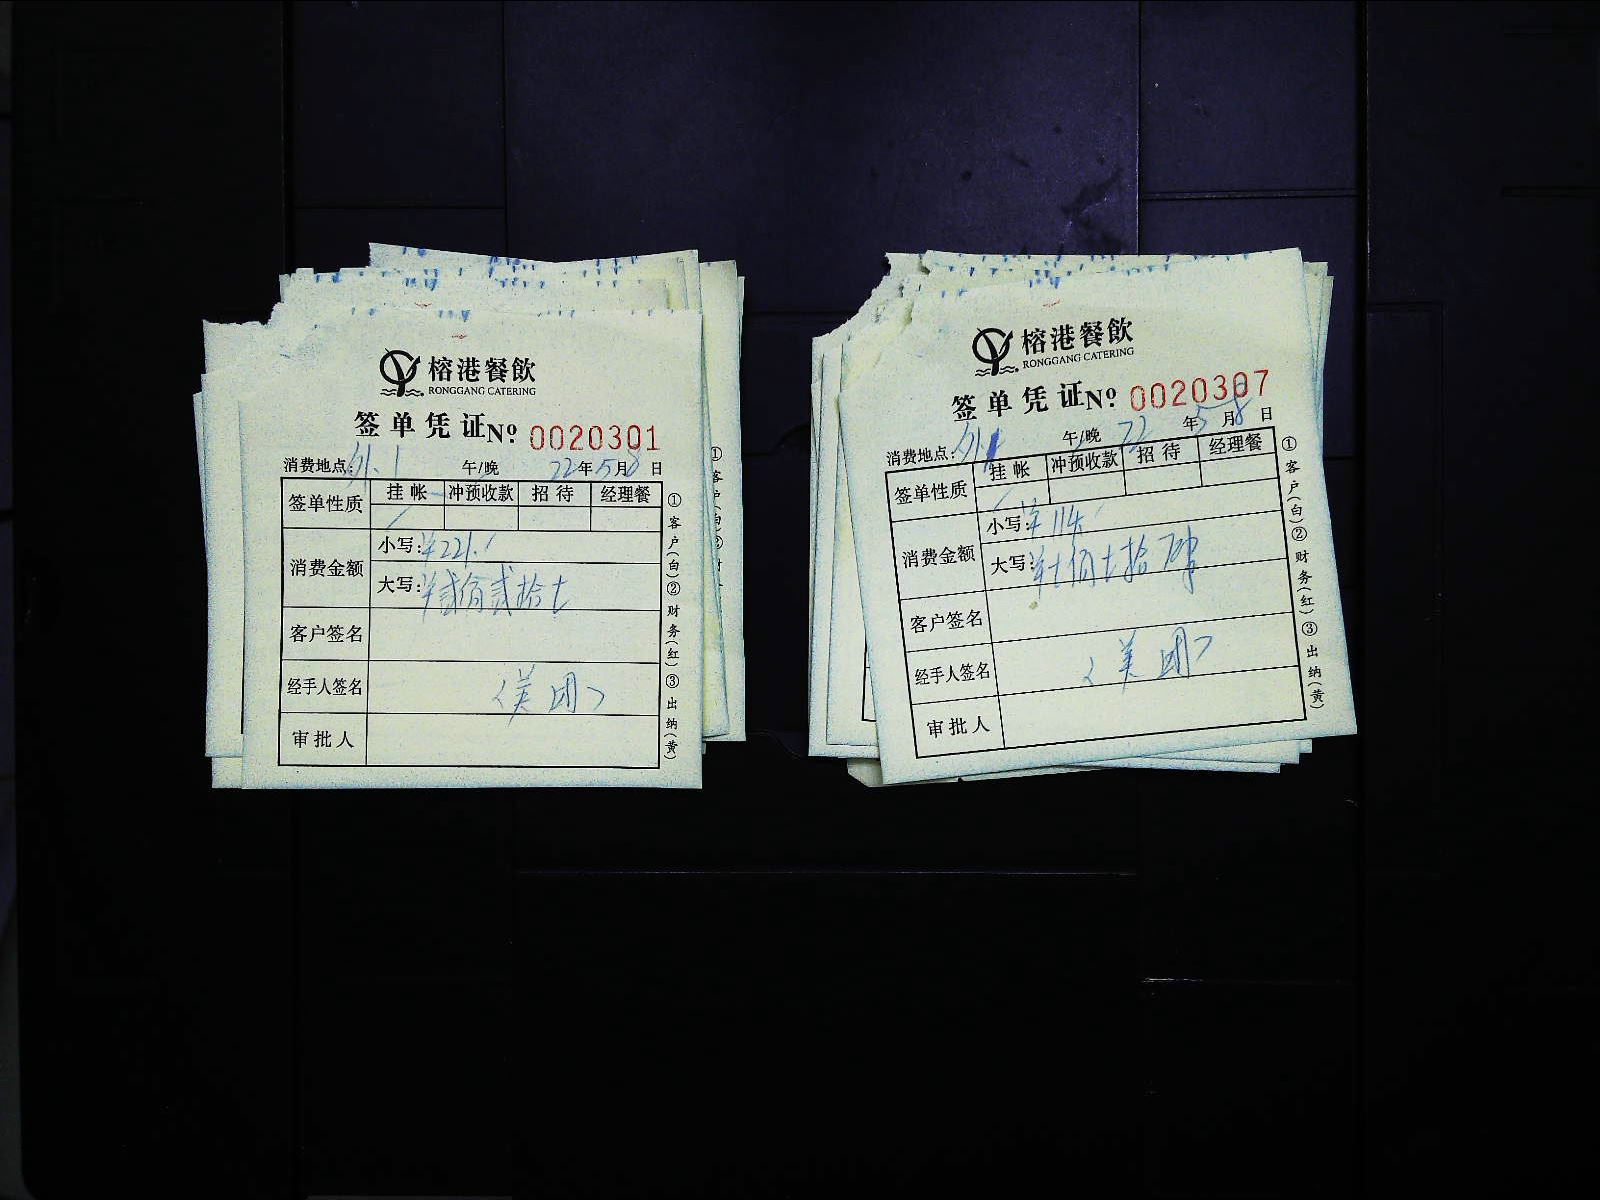 榕港餐飲
RONGGANG CATERING
签单凭证 No 0020301
消费地点: 外.1 午/晚 22年5月8日
签单性质 挂帐 冲预收款 招待 经理餐
消费金额
小写:
大写: 贰佰贰拾七
客户签名
经手人签名 <美团>
审批人
①客户(白)②财务(红)③出纳(黄)
榕港餐飲
RONGGANG CATERING
签单凭证 No 0020307
消费地点: 外 午/晚 22年5月8日
签单性质 挂帐 冲预收款 招待 经理餐
消费金额
小写:
大写:
客户签名
经手人签名 <美团>
审批人
①客户(白)②财务(红)③出纳(黄)